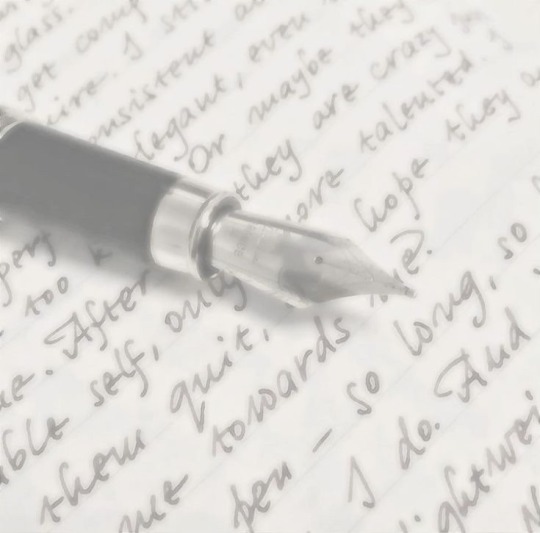 glass.
get comp
. I
onsistent
elegant, even
Or maybe they
they are crazy
more talented. I
hope they
me?
too
. After
able self, only
them quit,
me towards
pen – so long, so
I do. And
ightwei